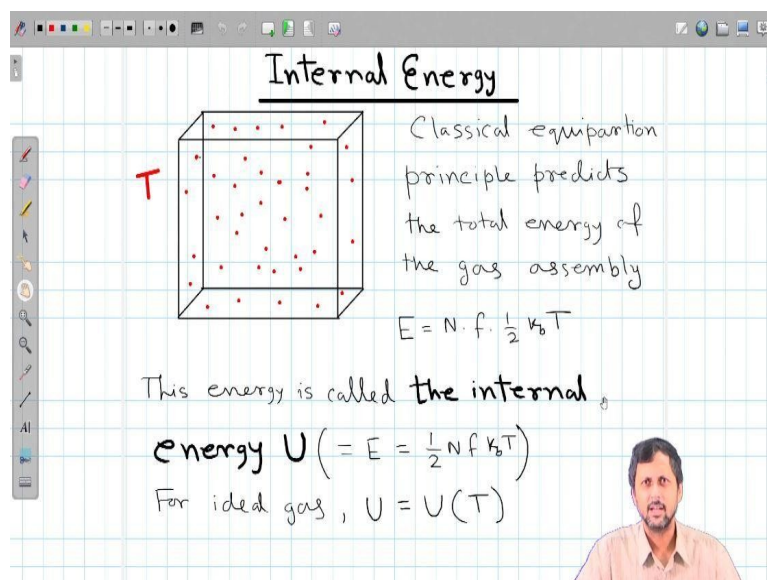 Internal Energy
T
Classical equipartion
principle predicts
the total energy of
the gas assembly
E = N. f. 1/2 k_b T
This energy is called the internal
energy U ( = E = 1/2 N f k_b T )
For ideal gas, U = U(T)
AI